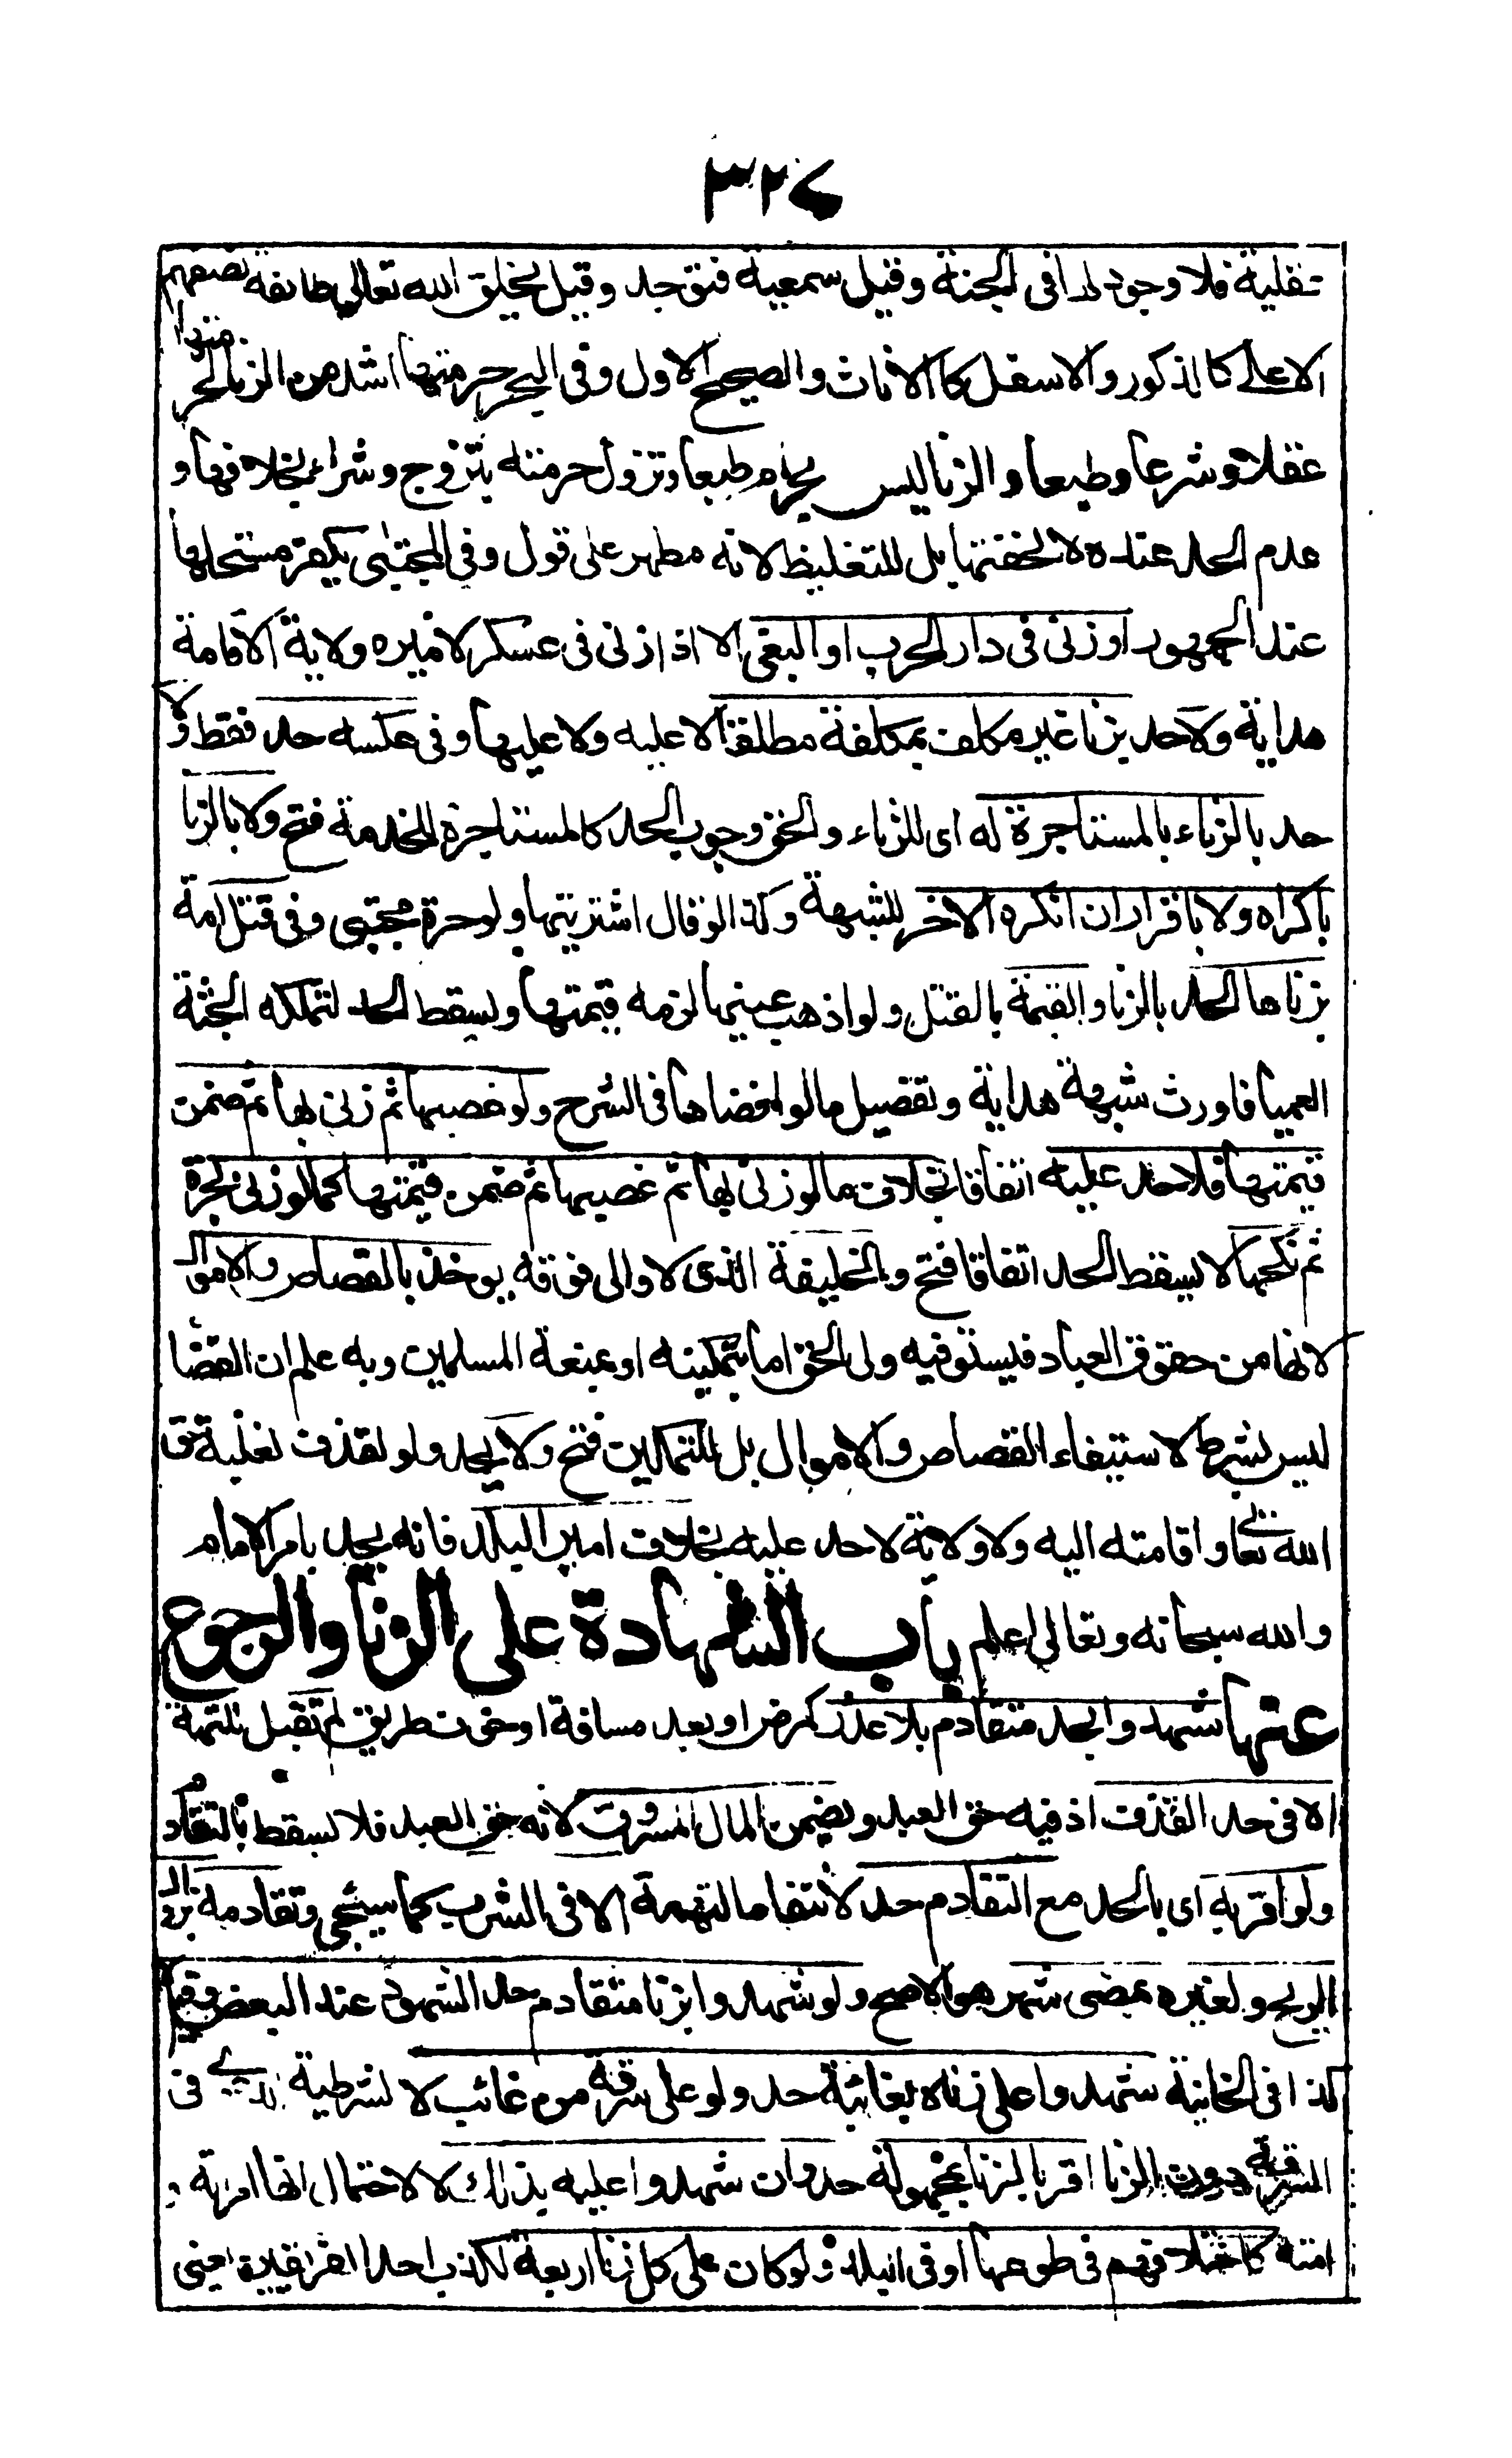 ٣٢٧
عقلية فلا وجود لها فى الجنة وقيل سمعية فتوجد وقيل يخلق الله تعالى طائفة نصفهم
الاعلى كالذكور والاسفل كالاناث والصحيح الاول وفى البحر حرمتها اشد من الزنا لحرمتها
عقلا وشرعا وطبعا والزنا ليس بحرام طبعا وتزول حرمته بتزوج وشراء بخلافها و
عدم الحد عنده لا لخفتها بل للتغليظ لانه مطهر على قول وفى المجتبى يكفر مستحلها
عند الجمهور او زنى فى دار الحرب او البغى الا اذا زنى فى عسكر لاميره ولاية الاقامة
هداية ولا حد بزنا غير مكلف بمكلفة مطلقا لا عليه ولا عليها وفى عكسه حد فقط ولا
حد بالزناء بالمستاجرة له اى للزناء والحق وجوب الحد كالمستاجرة للخدمة فتح ولا بالزنا
باكراه ولا باقرار ان انكره الاخر للشبهة وكذا لو قال اشتريتها ولو حرة مجتبى وفى قتل امة
بزناها الحد بالزنا والقيمة بالقتل ولو اذهب عينها لزمه قيمتها ويسقط الحد لتملكه الجثة
العميا فاورث شبهة هداية وتفصيل ما لو افضاها فى الشرح ولو غصبها ثم زنى بها ثم ضمن
قيمتها فلا حد عليه اتفاقا بخلاف ما لو زنى بها ثم غصبها ثم ضمن قيمتها كما لو زنى بحرة
ثم نكحها لا يسقط الحد اتفاقا فتح والخليفة الذى لا والى فوقه يوخذ بالقصاص والاموال
لانها من حقوق العباد فيستوفيه ولى الحق اما بتمكينه او بمنعة المسلمين وبه علم ان القضا
ليس بشرط لاستيفاء القصاص والاموال بل للتمكين فتح ولا يحد ولو لقذف لغلبة حق
الله تعالى واقامته اليه ولا ولاية لاحد عليه بخلاف امير البلد فانه يحد بامر الامام
والله سبحانه وتعالى اعلم باب الشهادة على الزنا والرجوع
عنها شهدوا بحد متقادم بلا عذر كمرض او بعد مسافة او خوف طريق لم تقبل للتهمة
الا فى حد القذف اذ فيه حق العبد ويضمن المال المسروق لانه حق العبد فلا يسقط بالتقادم
ولو اقر به اى بالحد مع التقادم حد لانتفاء التهمة الا فى الشرب كما سيجى وتقادمه بزوال
الريح ولغيره بمضى شهر هو الاصح ولو شهدوا بزنا متقادم حد الشهود عند البعض وقيل لا
كذا فى الخانية شهدوا على زناه بغائبة حد ولو على سرقة من غائب لا لشرطية الدعوى فى
السرقة دون الزنا اقر بالزنا بمجهولة حد وان شهدوا عليه بذلك لا لاحتمال انها امراته او
امته كاختلافهم فى طوعها او فى البلد ولو كان على كل زنا اربعة لكذب احد الفريقين يعنى